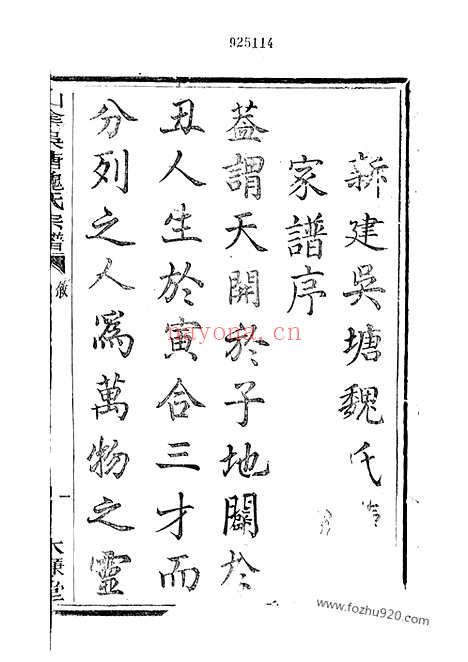 925114
新建吳塘魏氏
家譜序
蓋謂天開於子地闢於
丑人生於寅合三才而
分列之人爲萬物之靈
山陰吳塘魏氏宗譜
一
nayong.cn
www.fozhu920.com